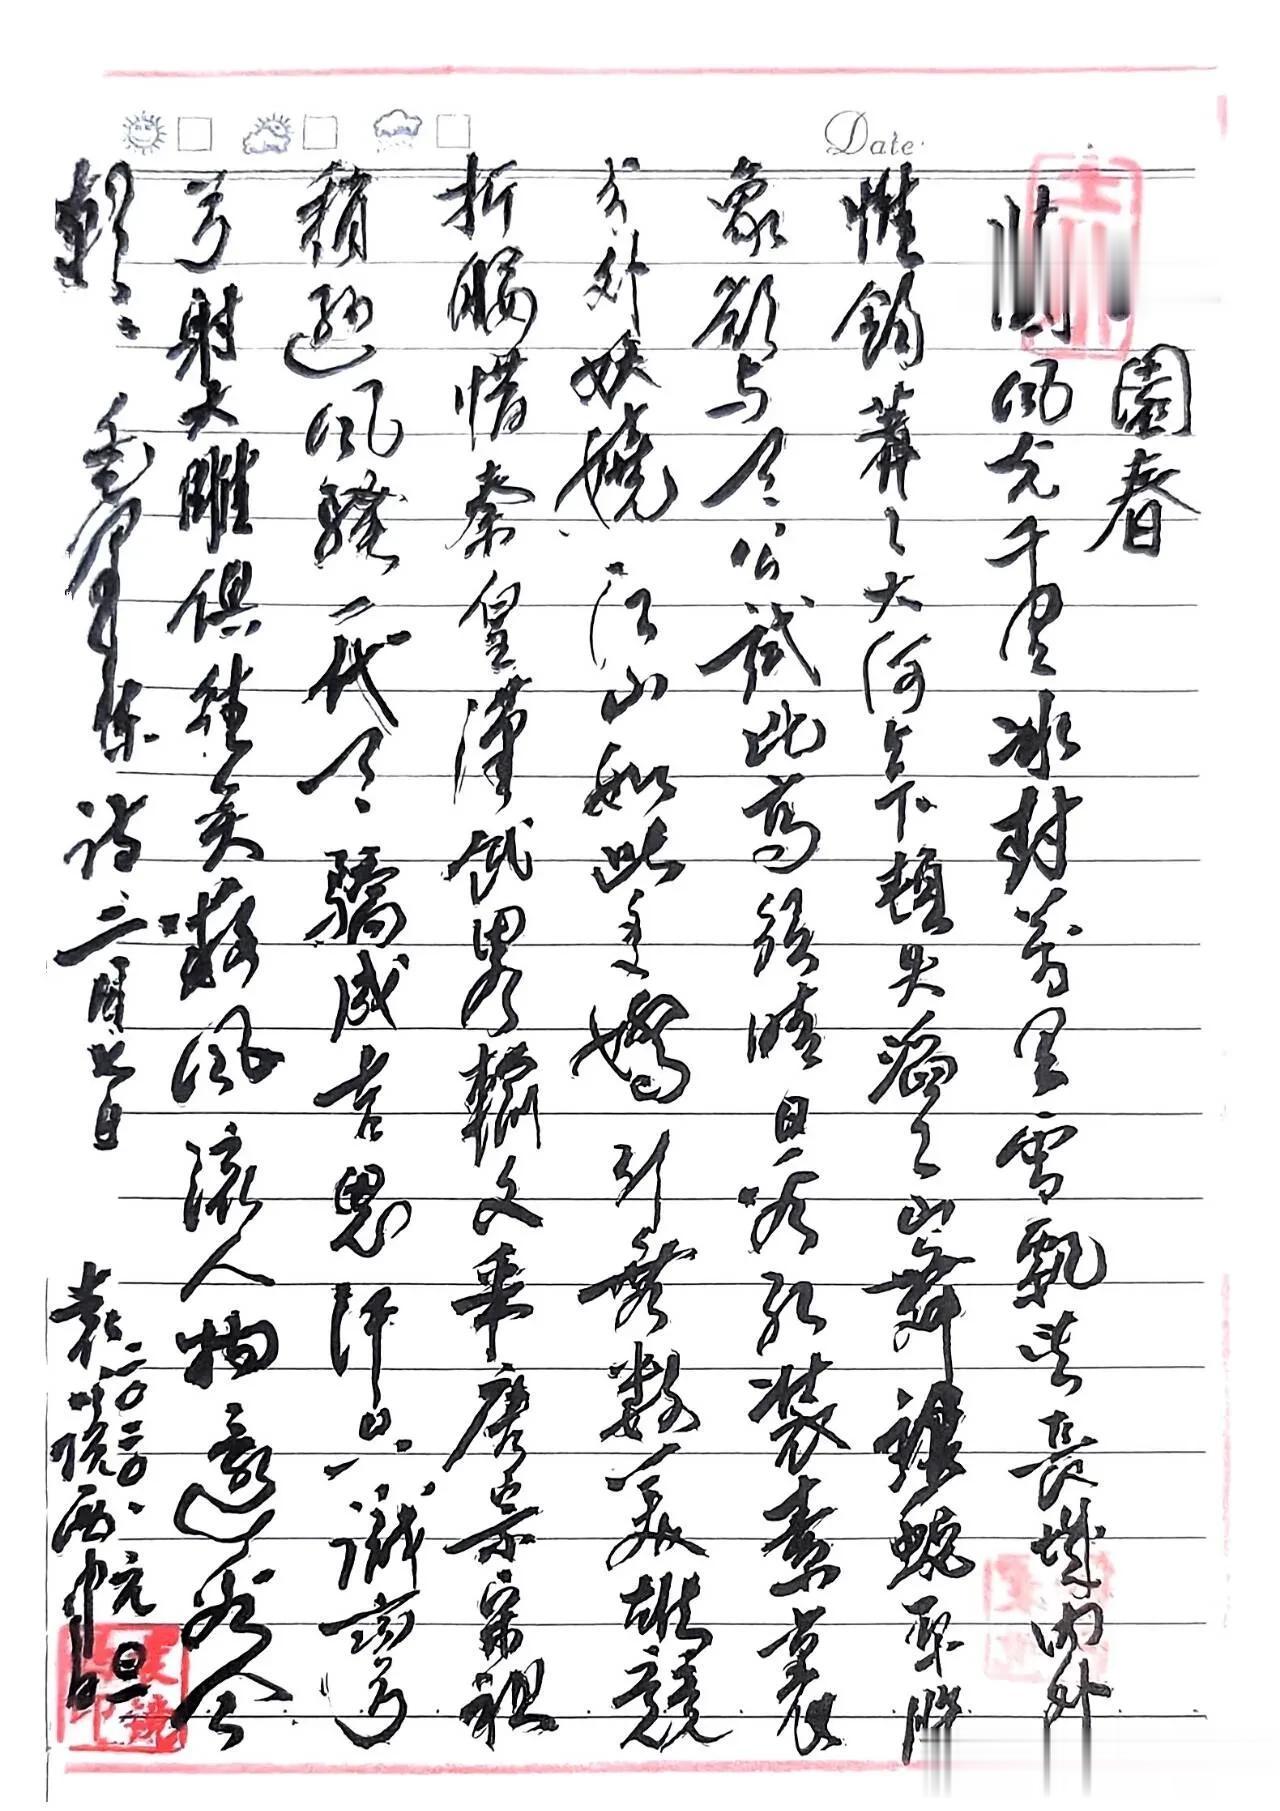 園春
國風光千里冰封萬里雪飄望長城内外
惟餘莽々大河上下頓失滔々山舞銀蛇原馳臘
象欲与天公試比高須晴日看红装素裹
分外妖嬈江山如此多嬌引無数英雄競
折腰惜秦皇漢武略輸文采唐宗宋祖
稍遜風騷一代天驕成吉思汗只識彎
弓射大雕俱往矣数風流人物還看今
朝 毛澤東詩 月七日 袁
二〇二〇元旦
Date